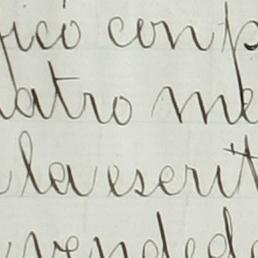 icó con p
atro me
la escrit
vended